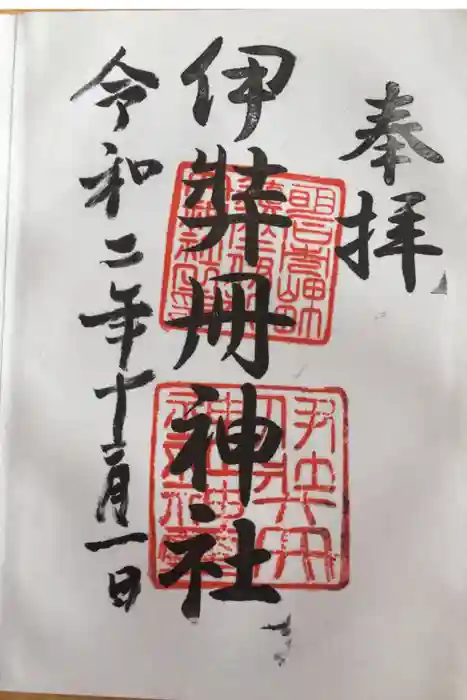 奉拝
伊弉冊神社
令和二年十二月一日